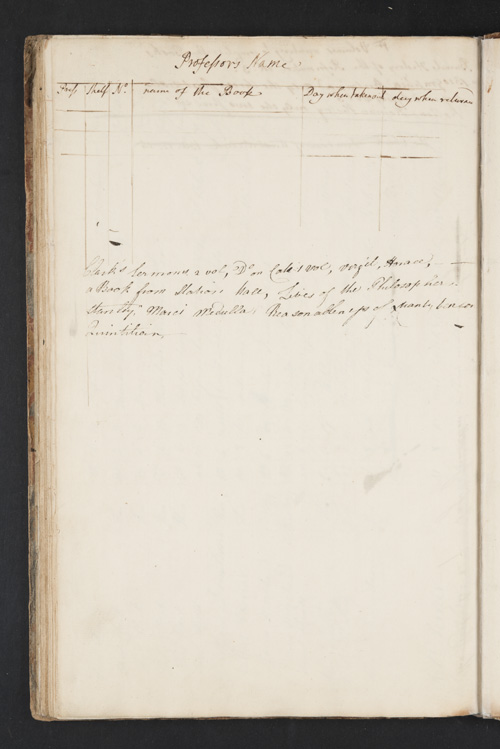 Professors Name
Press Shelf No. name of the Book Day when taken out day when return
Clark's Sermons 2 vol, Do. on Cate 1 vol, Virgil, Horace,
a Book from Stationrs Hall, Lives of the Philosophers
Stanly, Marci Medulla, Reasonableness of
Quintilian,